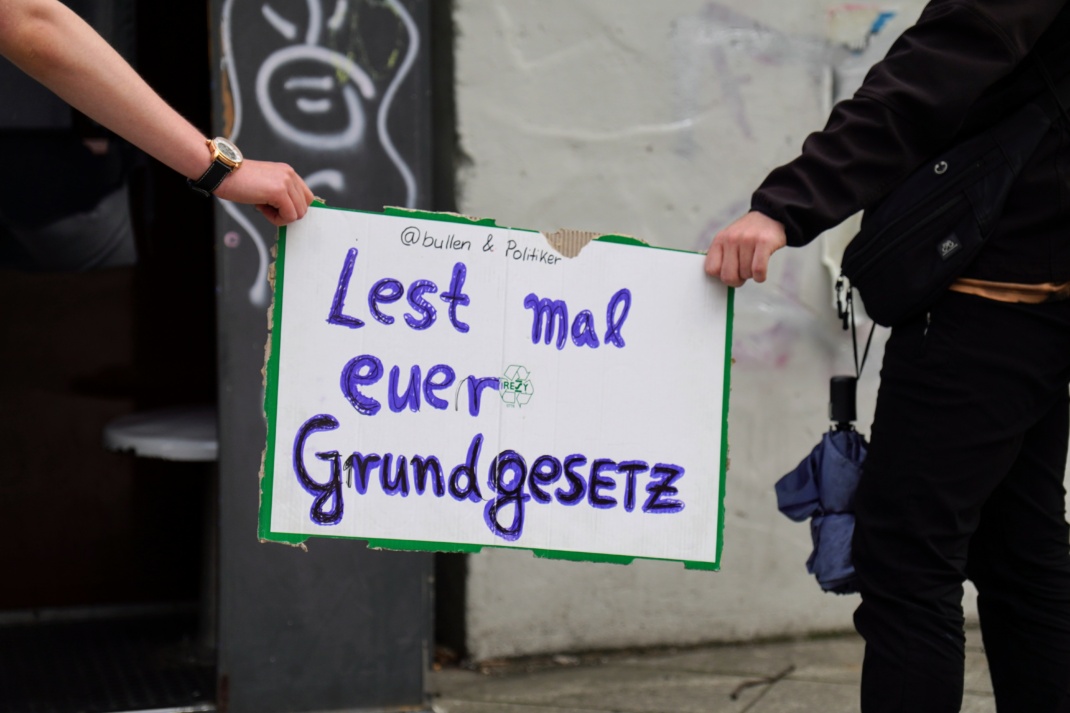 @bullen & Politiker
Lest mal
euer
REZY
GrundgeSETZ